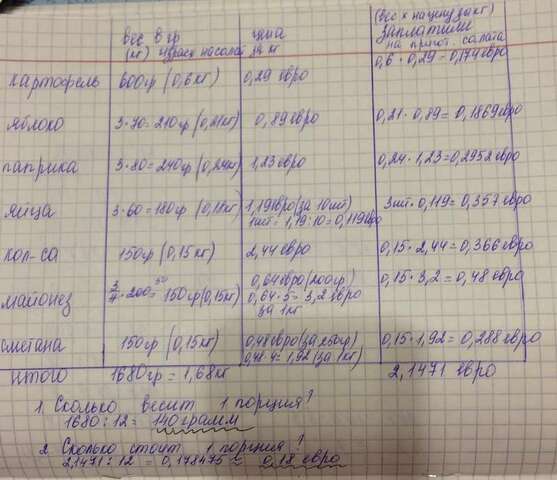 вес в гр цена (вес х на цену за кг)
(кг) израсх на салат за кг заплатили
на пригот. салата
картофель 600гр (0,6кг) 0,29 евро 0,6 · 0,29 = 0,174 евро
яблоко 3·70=210гр (0,21кг) 0,89 евро 0,21 · 0,89 = 0,1869 евро
паприка 3·80=240гр (0,24кг) 1,23 евро 0,24 · 1,23 = 0,2952 евро
яйца 3·60=180гр (0,18кг) 1,19 евро (за 10шт) 3шт · 0,119 = 0,357 евро
1шт = 1,19:10=0,119 евро
кол-са 150гр (0,15кг) 2,44 евро 0,15 · 2,44 = 0,366 евро
майонез 3/4 · 200 = 150гр (0,15кг) 0,64 евро (200гр) 0,15 · 3,2 = 0,48 евро
0,64 · 5 = 3,2 евро
за 1кг
сметана 150гр (0,15кг) 0,48 евро (за 250гр) 0,15 · 1,92 = 0,288 евро
0,48·4 = 1,92 (за 1кг)
итого 1680гр = 1,68кг 2,1471 евро
1. Сколько весит 1 порция?
1680 : 12 = 140 грамм
2. Сколько стоит 1 порция?
2,1471 : 12 = 0,178475 ≈ 0,18 евро